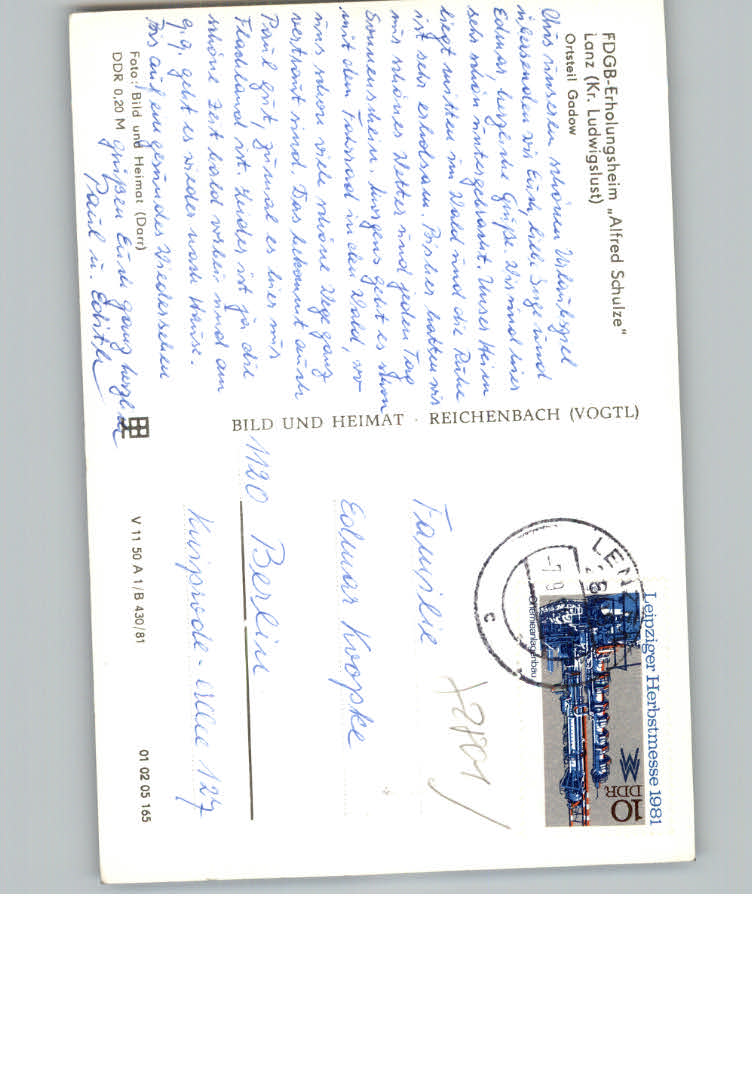 FDGB-Erholungsheim „Alfred Schulze"
Lanz (Kr. Ludwigslust)
Ortsteil Gadow
Aus unserem schönen Urlaubsziel
übersenden wir Euch, liebe Inge und
Edmar herzliche Grüße. Wir sind hier
sehr schön untergebracht. Unser Heim
liegt mitten im Wald und die Ruhe
ist sehr erholsam. Bisher hatten wir
nur schönes Wetter und jeden Tag
Sonnenschein. Morgens geht es schon
mit dem Fahrrad in den Wald, wo
uns schon viele schöne Wege ganz
vertraut sind. Das bekommt auch
Paul gut, zumal es hier nur
Flachland ist. Leider ist ja die
schöne Zeit bald vorbei und am
9.9. geht es wieder nach Hause.
Bis auf ein gesundes Wiedersehen
grüßen Euch ganz herzlich
Paul u. Edith
Foto: Bild und Heimat (Darr)
DDR 0,20 M
BILD UND HEIMAT · REICHENBACH (VOGTL)
V 11 50 A 1/B 430/81
01 02 05 165
Leipziger Herbstmesse 1981
10
DDR
Chemieanlagenbau
LEN
-7.9
C
Familie
Edmar Kropske
1120 Berlin
Kuniprode-Allee 127